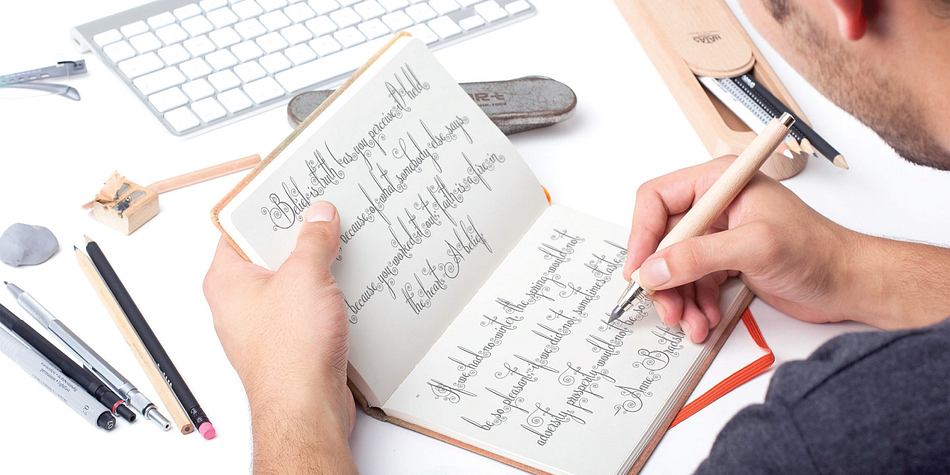 Belief is truth (as you perceive it) held
because of what somebody else says,
because you worked it out: faith is a fusion
the heart. All belief
If we had no winter, the spring would not
be so pleasant: if we did not sometimes taste
adversity, prosperity would not be so
Anne Brads